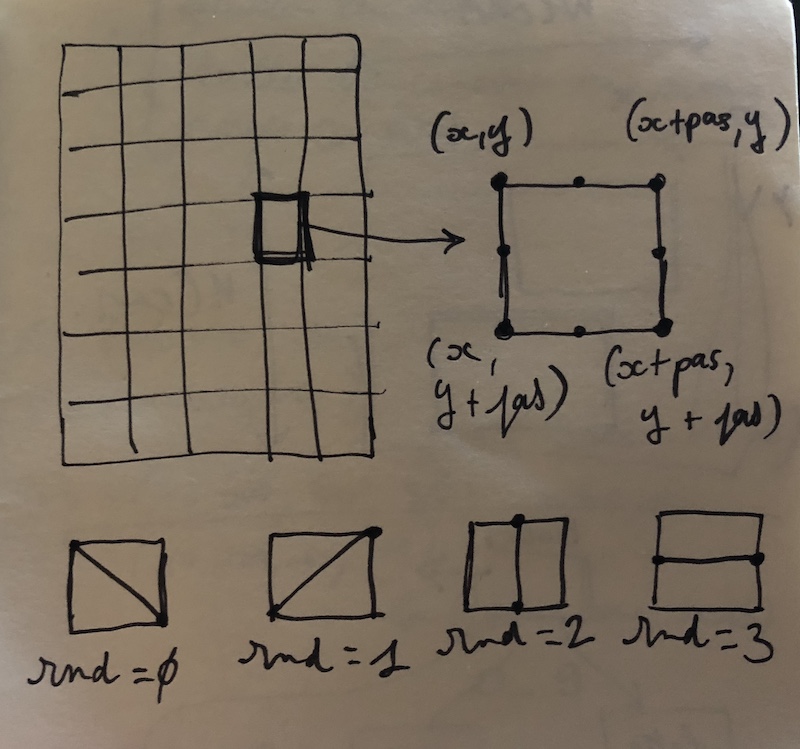 (x,y)
(x+pas,y)
(x,
y+pas)
(x+pas,
y+pas)
rnd=0
rnd=1
rnd=2
rnd=3